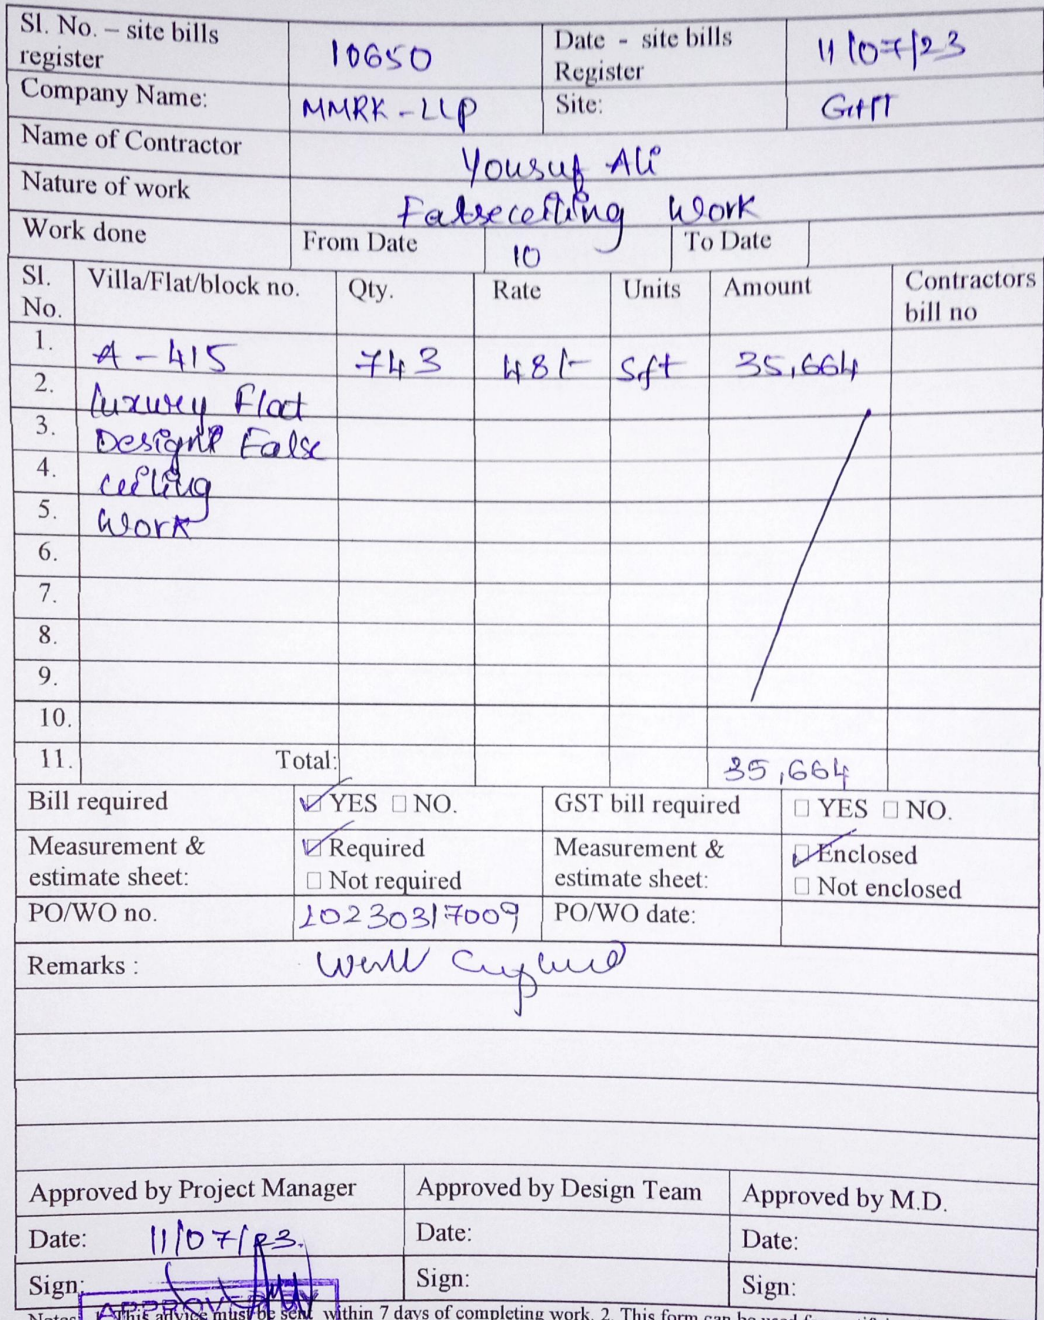 Sl. No. – site bills register 10650 Date - site bills Register 11/07/23
Company Name: MMRK-LLP Site: GHT
Name of Contractor Yousuf Ali
Nature of work Falseceiling Work
Work done From Date 10 To Date
Sl. No. Villa/Flat/block no. Qty. Rate Units Amount Contractors bill no
1. A-415 743 48/- Sft 35,664
2. Luxury Flat
3. Design False
4. ceiling
5. Work
6.
7.
8.
9.
10.
11. Total: 35,664
Bill required ☑ YES ☐ NO. GST bill required ☐ YES ☐ NO.
Measurement & estimate sheet: ☑ Required ☐ Not required Measurement & estimate sheet: ☑ Enclosed ☐ Not enclosed
PO/WO no. 20230317009 PO/WO date:
Remarks : Work
Approved by Project Manager Approved by Design Team Approved by M.D.
Date: 11/07/23. Date: Date:
Sign: Sign: Sign:
APPROVED
This advice must be sent within 7 days of completing work. 2. This form can be used